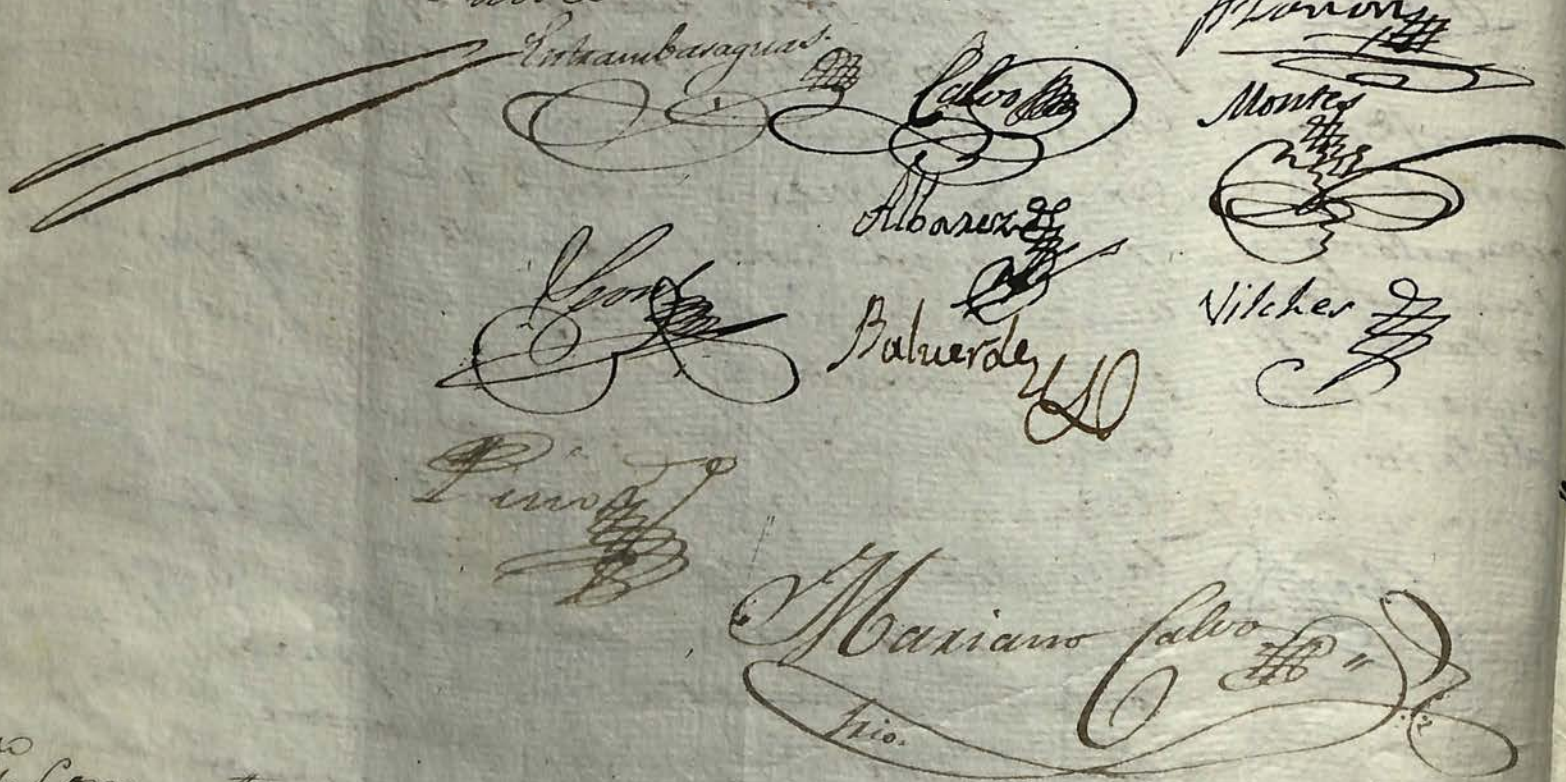 Entrambasaguas.
Calvo
Montes
Albarez
Leon
Baluerde
Vilches
Pino
Mariano Calvo
Srio.